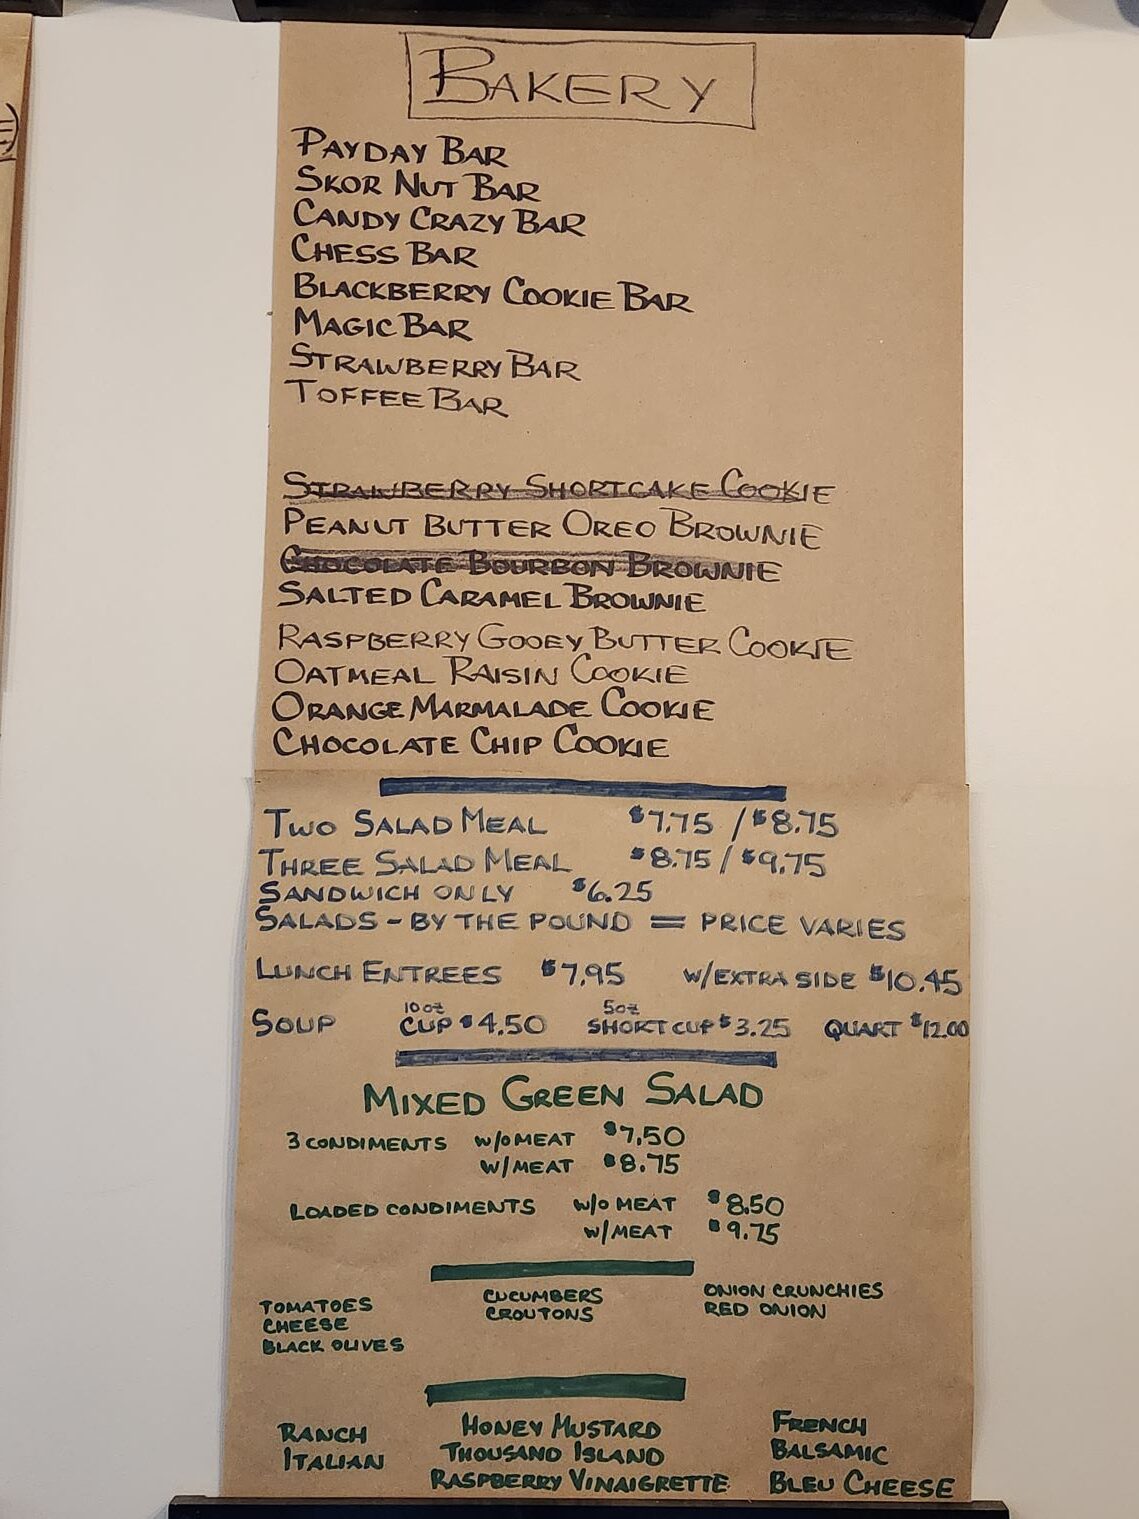 BAKERY
PAYDAY BAR
SKOR NUT BAR
CANDY CRAZY BAR
CHESS BAR
BLACKBERRY COOKIE BAR
MAGIC BAR
STRAWBERRY BAR
TOFFEE BAR
STRAWBERRY SHORTCAKE COOKIE
PEANUT BUTTER OREO BROWNIE
CHOCOLATE BOURBON BROWNIE
SALTED CARAMEL BROWNIE
RASPBERRY GOOEY BUTTER COOKIE
OATMEAL RAISIN COOKIE
ORANGE MARMALADE COOKIE
CHOCOLATE CHIP COOKIE
TWO SALAD MEAL $7.75 / $8.75
THREE SALAD MEAL $8.75 / $9.75
SANDWICH ONLY $6.25
SALADS - BY THE POUND = PRICE VARIES
LUNCH ENTREES $7.95 W/EXTRA SIDE $10.45
SOUP 10oz CUP $4.50 5oz SHORT CUP $3.25 QUART $12.00
MIXED GREEN SALAD
3 CONDIMENTS W/O MEAT $7.50
W/MEAT $8.75
LOADED CONDIMENTS W/O MEAT $8.50
W/MEAT $9.75
TOMATOES
CHEESE
BLACK OLIVES
CUCUMBERS
CROUTONS
ONION CRUNCHIES
RED ONION
RANCH
ITALIAN
HONEY MUSTARD
THOUSAND ISLAND
RASPBERRY VINAIGRETTE
FRENCH
BALSAMIC
BLEU CHEESE